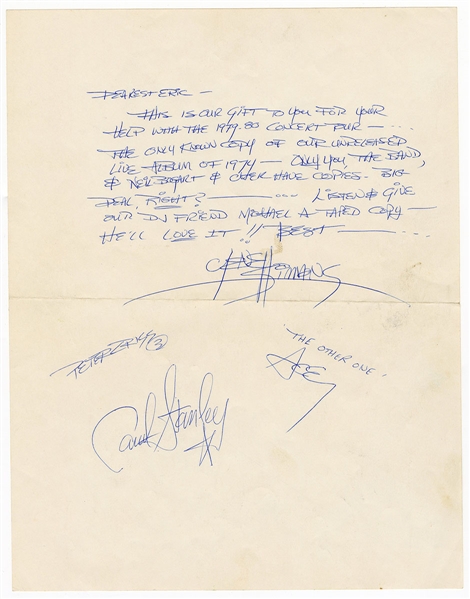 DEAREST ERIC —
THIS IS OUR GIFT TO YOU FOR YOUR
HELP WITH THE 1979-80 CONCERT TOUR — ...
THE ONLY KNOWN COPY OF OUR UNRELEASED
LIVE ALBUM OF 1974 — ONLY YOU, THE BAND,
& NEIL BOGART & CHER HAVE COPIES. BIG
DEAL, RIGHT? — ... LISTEN & GIVE
OUR DJ FRIEND MICHAEL A TAPED COPY —
HE'LL LOVE IT!! BEST — ...
GENE SIMMONS
PETER CRISS
"THE OTHER ONE"
ACE
Paul Stanley